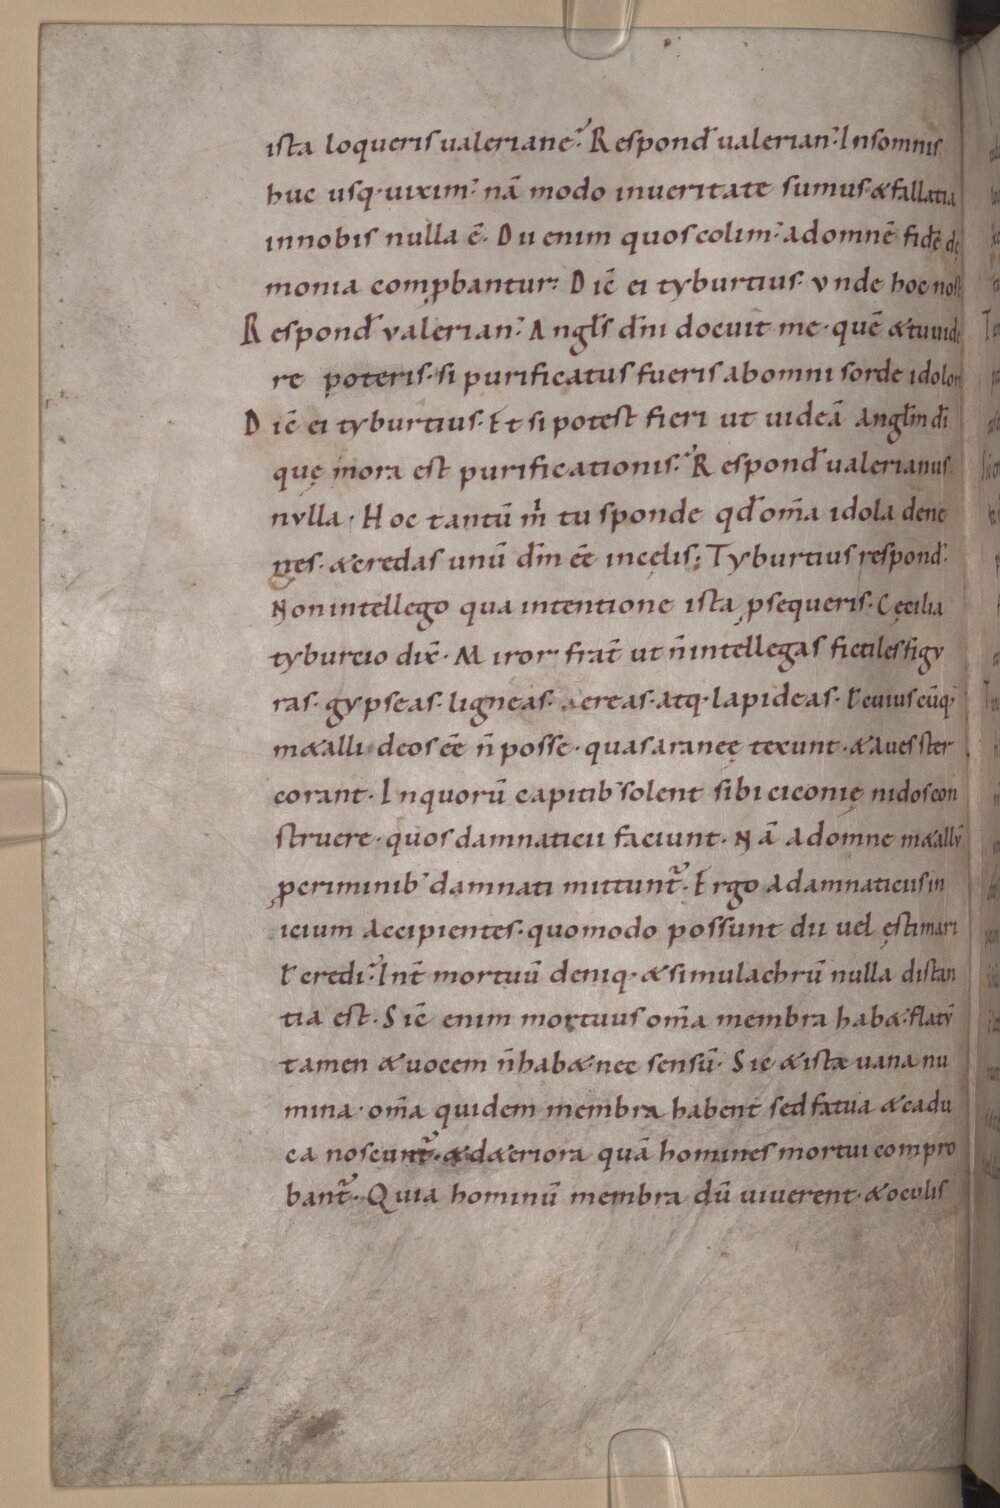 ista loqueris ualeriane? Respond̄ ualerian᾿. In somnis
huc usq· uixim᾿. nā modo in ueritate sumus· & fallatia
in nobis nulla ē. Dii enim quos colim᾿. ad omnē fidē de
monia comꝓbantur. Dic̄ ei tyburtius. Vnde hoc nosti
Respond̄ valerian᾿. Angl̄s dn̄i docuit me· quē & tu uide
re poteris· si purificatus fueris ab omni sorde idolor
Dic̄ ei tyburtius. Et si potest fieri ut uideā Angl̄m dī
quę mora est purificationis? Respond̄ ualerianus.
nvlla. Hoc tantū m̄ tu sponde qd̄ om̄a idola dene
ges· & credas unū dm̄ eē in cęlis; Tyburtius respond̄.
Non intellego qua intentione ista ꝓsequeris. Cęcilia
tyburcio dix̄. Miror frat̄ ut n̄ intellegas fictiles figv
ras· gypseas· ligneas· aereas· atq· lapideas· ł cuiuscūq·
m&alli deos eē n̄ posse· quas araneę texunt· & aues ster
corant. In quorū capitib᾿ solent sibi ciconię nidos con
struere· quos damnaticii faciunt. Nā ad omne m&allv̄
ꝓ criminib᾿ damnati mittunt̄. Ergo a damnaticiis in
icium accipientes· quomodo possunt dii uel ęstimari
ł credi? Int̄ mortuū deniq· & simulachrū nulla distan
tia est. Sic̄ enim mortuus om̄a membra hab&· flatv̄
tamen & uocem n̄ hab& nec sensū. Sic & ista uana nu
mina· om̄a quidem membra habent sed fatua & cadu
ca noscunt̄· & d&eriora quā homines mortui compro
bant̄. Quia hominū membra dū uiuerent· & oculis